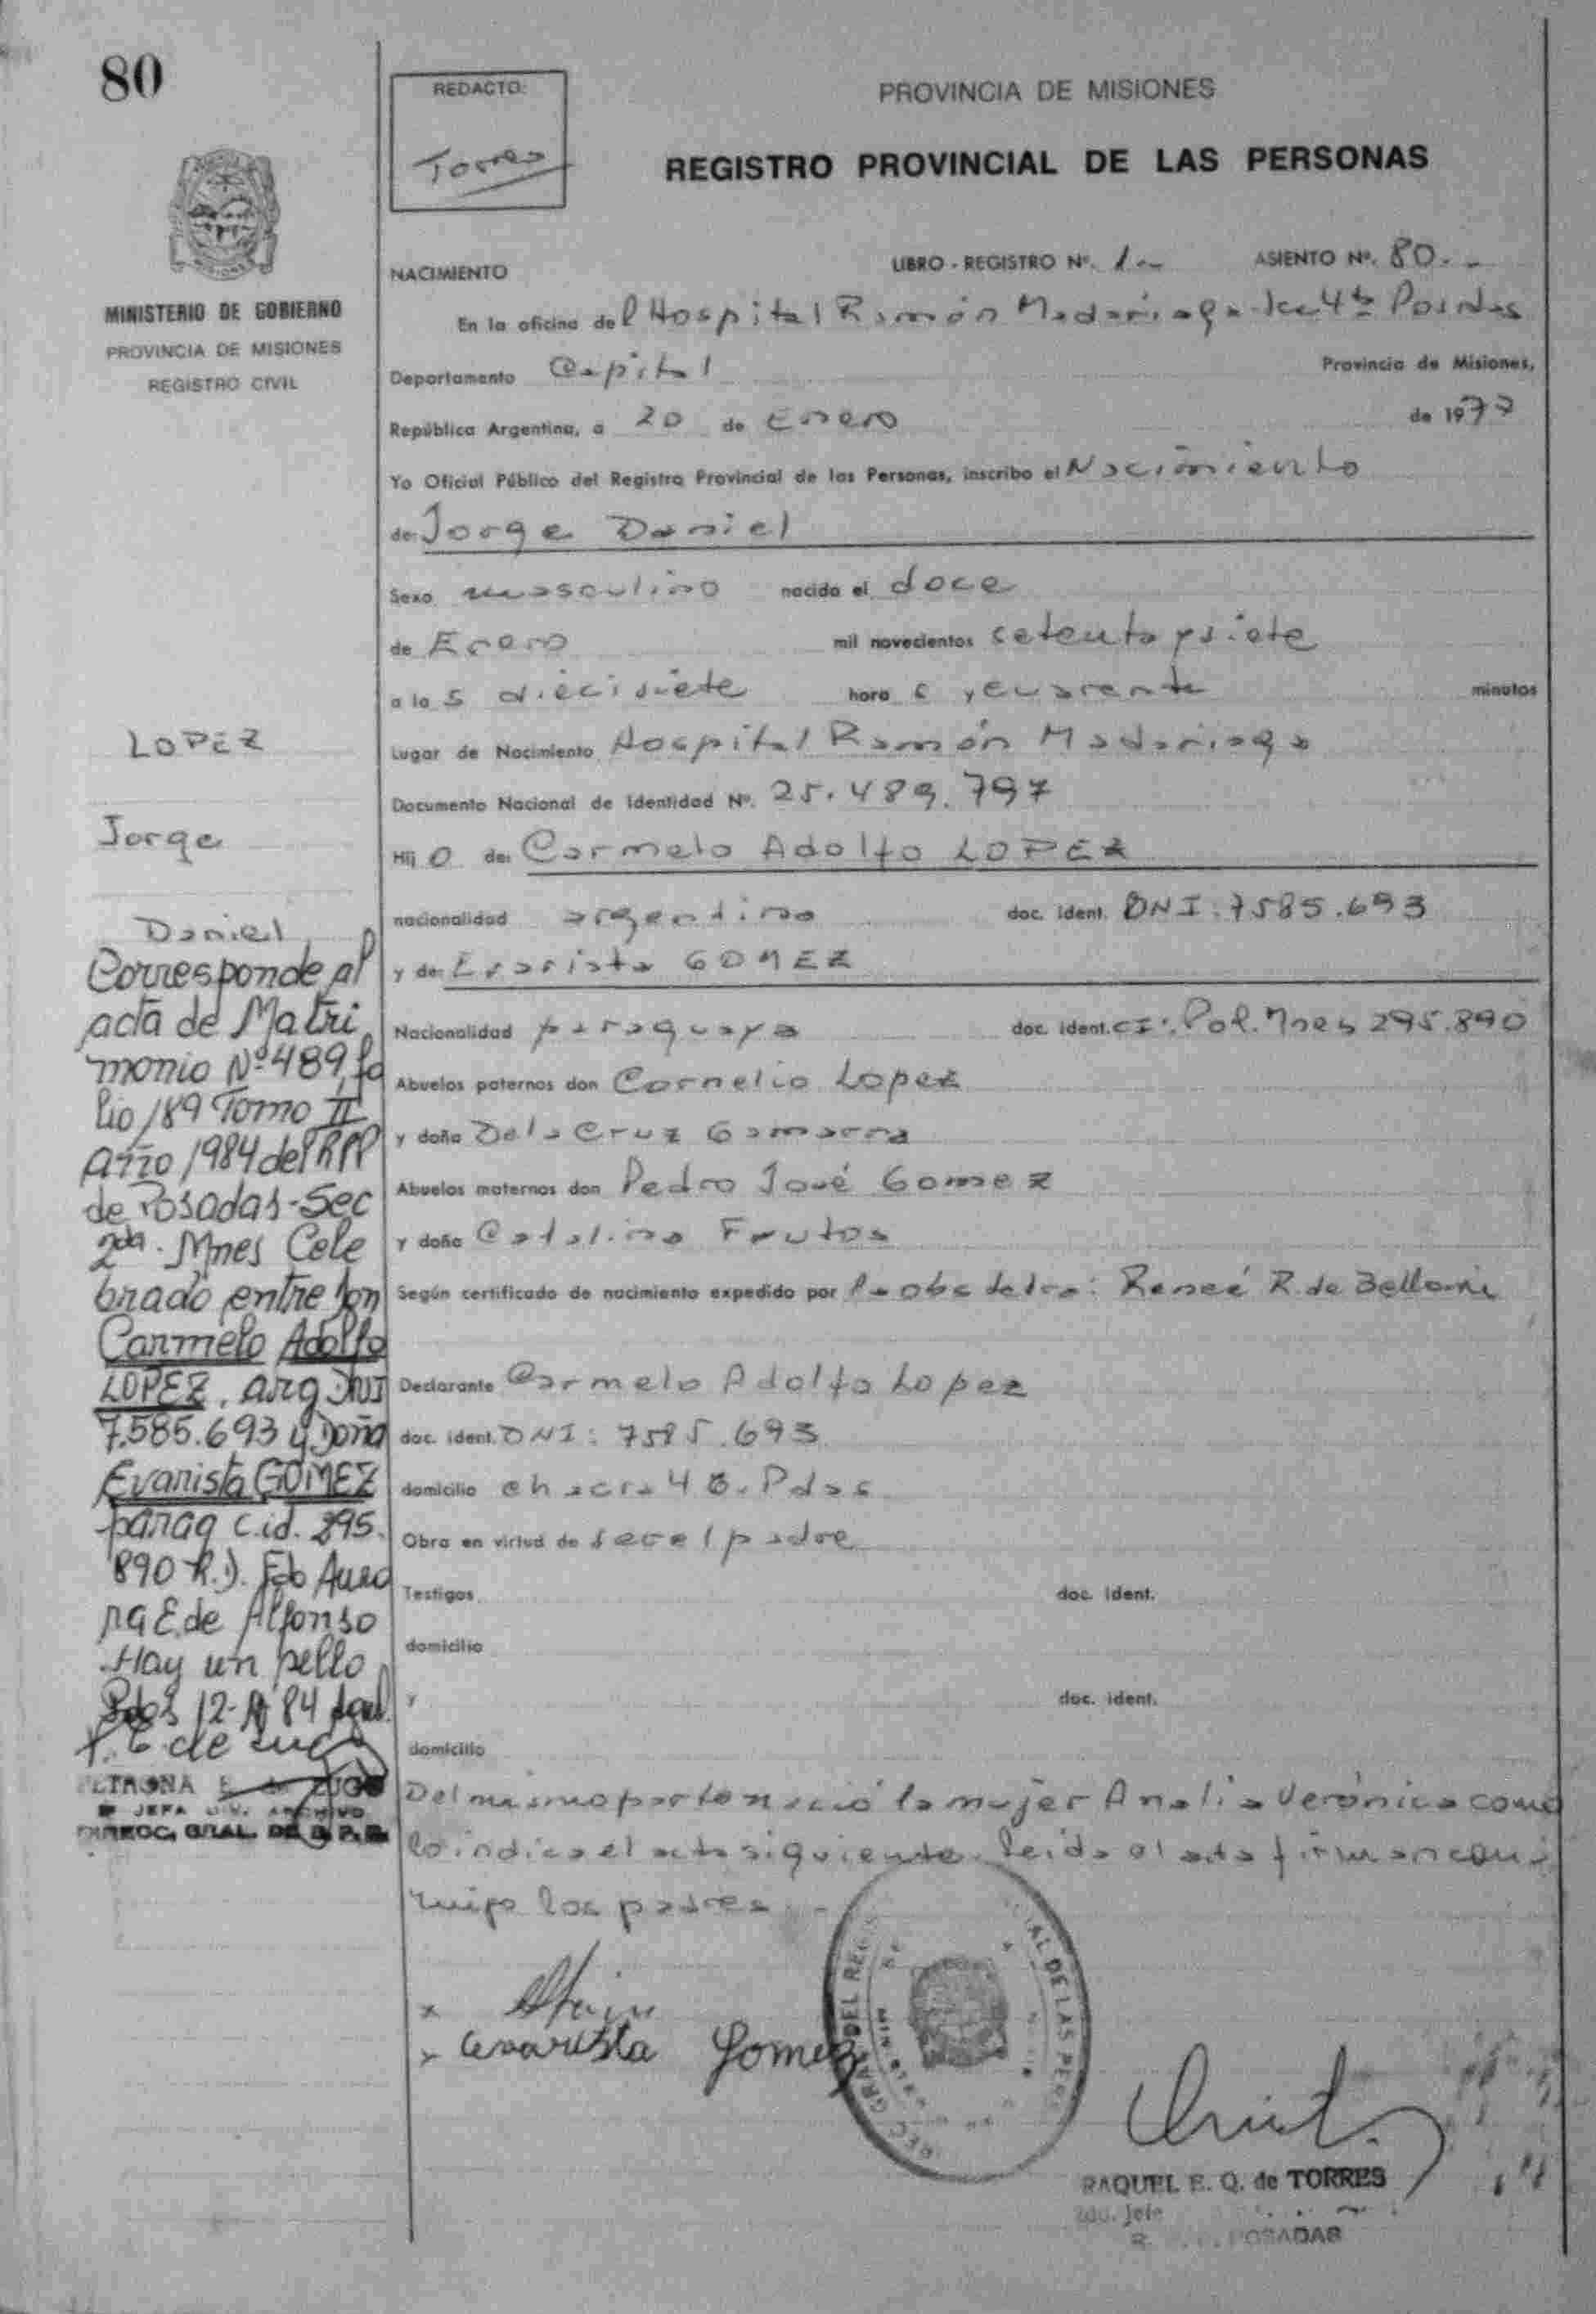 80
REDACTO:
Torres
PROVINCIA DE MISIONES
REGISTRO PROVINCIAL DE LAS PERSONAS
MINISTERIO DE GOBIERNO
PROVINCIA DE MISIONES
REGISTRO CIVIL
NACIMIENTO LIBRO - REGISTRO Nº. 1-- ASIENTO Nº. 80.--
En la oficina del Hospital Ramón Madariaga Posadas
Departamento Capital Provincia de Misiones,
República Argentina, a 20 de Enero de 1977
Yo Oficial Público del Registro Provincial de las Personas, inscribo el Nacimiento
de: Jorge Daniel
Sexo masculino nacido el doce
de Enero mil novecientos setenta y siete
a las diecisiete horas y cuarenta minutos
Lugar de Nacimiento Hospital Ramón Madariaga
Documento Nacional de Identidad Nº. 25.489.797
Hijo de: Carmelo Adolfo LOPEZ
nacionalidad argentino doc. ident. DNI: 7585.693
y de: Evarista GOMEZ
Nacionalidad paraguaya doc. ident. CI: Pol. Mnes 295.890
Abuelos paternos don Cornelio Lopez
y doña De la Cruz Gamarra
Abuelos maternos don Pedro José Gomez
y doña Catalina Frutos
Según certificado de nacimiento expedido por la obstetra: Reneé R. de Belloni
Declarante Carmelo Adolfo Lopez
doc. ident. DNI: 7585.693
domicilio chacra 48. Pdas
Obra en virtud de ser el padre
Testigos doc. ident.
domicilio
y doc. ident.
domicilio
Del mismo parto nació la mujer Analia Verónica como
lo indica el acta siguiente. leida el acta firman con-
migo los padres.-
LOPEZ
Jorge
Daniel
Corresponde al
acta de Matri
monio Nº 489, fo
lio 189 Tomo II
Año 1984 del RPP
de Posadas-Sec
2da. Mnes Cele
brado entre Don
Carmelo Adolfo
LOPEZ, arg DNI
7.585.693 y Doña
Evarista GOMEZ
parag c.id. 295.
890 R.D. Fdo Auro
ra E. de Alfonso
Hay un sello
Pdas 12- 84
P. E. de Lugo
PETRONA E. de LUGO
JEFA DIV. ARCHIVO
DIRECC. GRAL. DE R. P. P.
x
x Evarista Gomez
DEL REGIS
IAL DE LAS PERS
RAQUEL E. Q. de TORRES
2do. Jefe
POSADAS